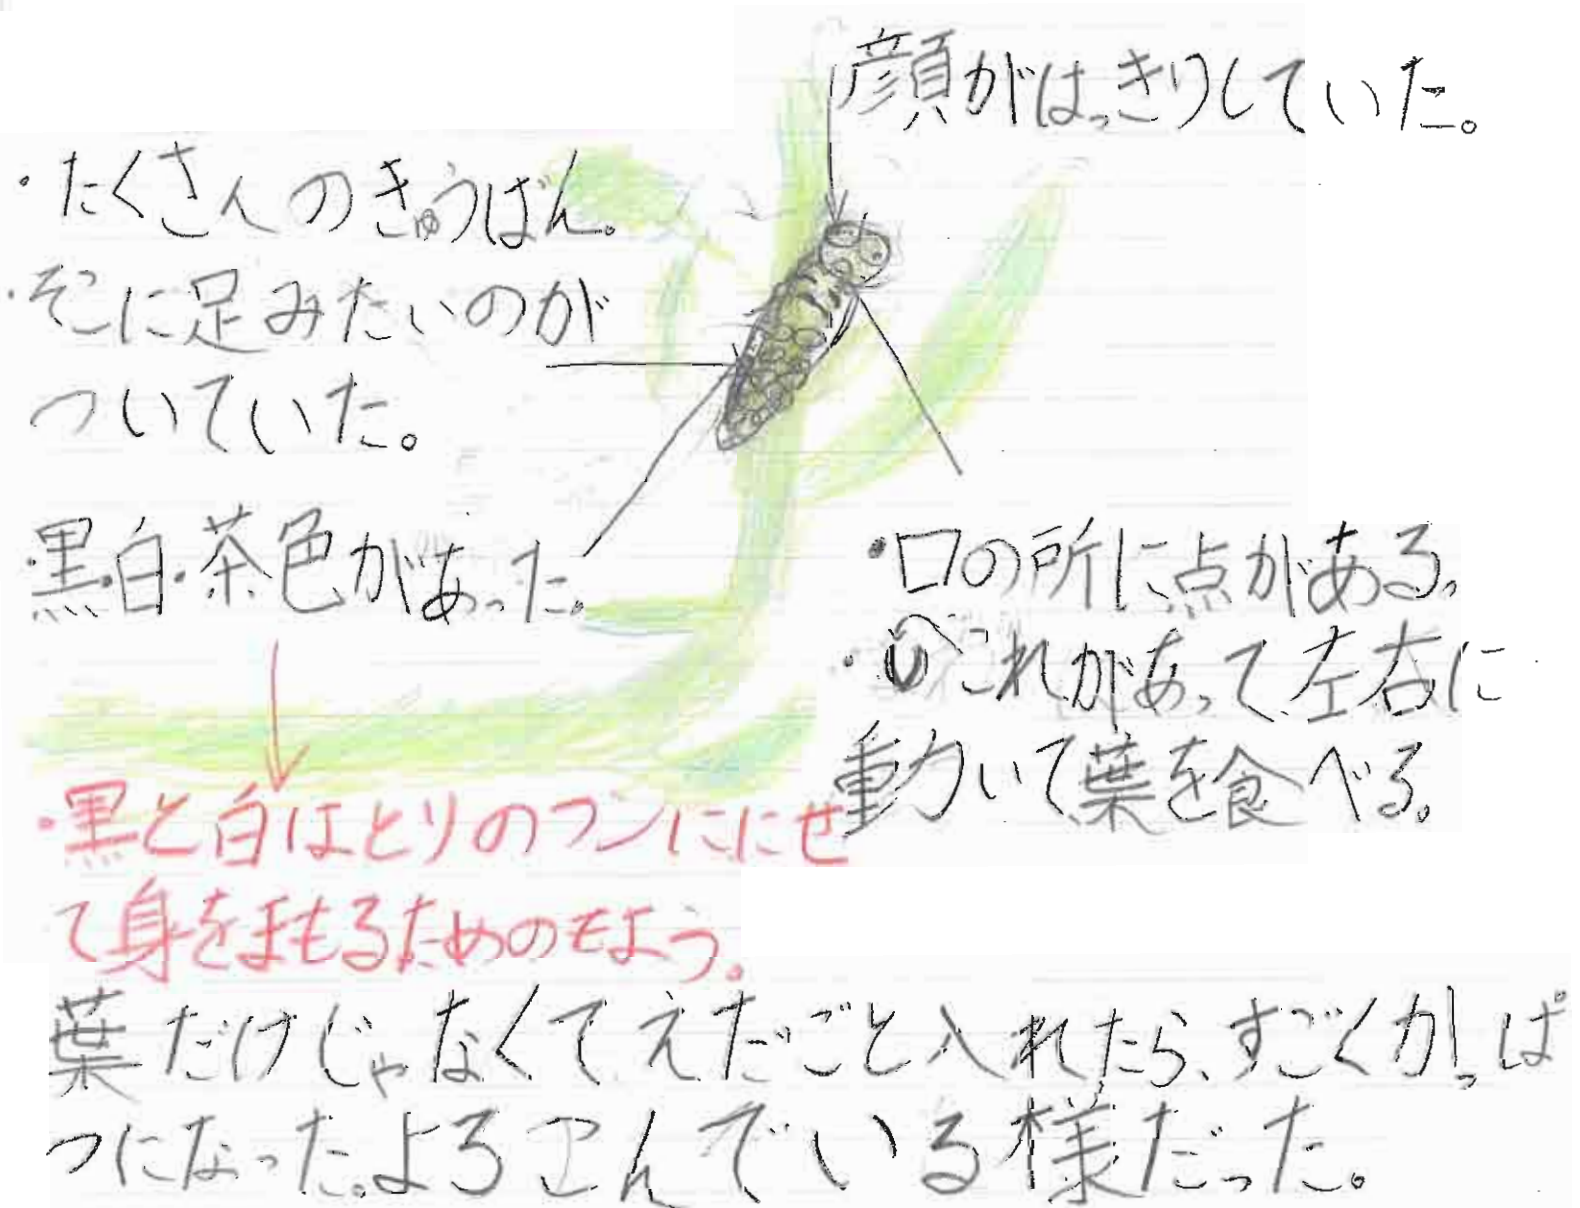 顔がはっきりしていた。
・たくさんのきゅうばん。
・そこに足みたいのが
ついていた。
・黒・白・茶色があった。
・口の所に点がある。
・これがあって左右に
動いて葉を食べる。
・黒と白はとりのフンににせ
て身をまもるためのもよう。
葉だけじゃなくてえだごと入れたら、すごくかっぱ
つになった。よろこんでいる様だった。